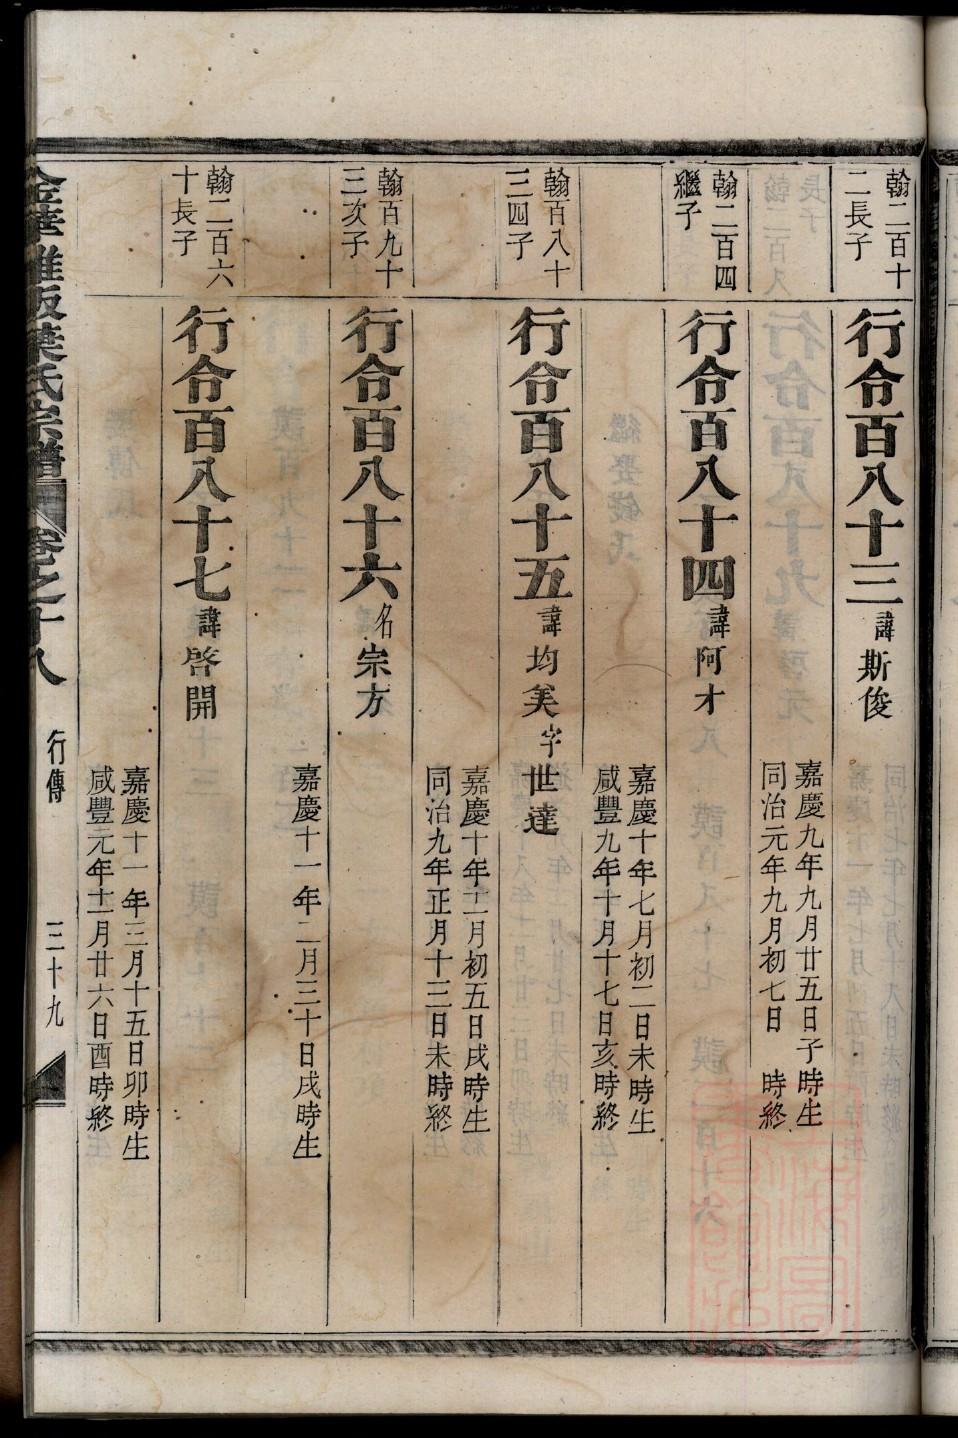 翰二百十
二長子
行令百八十三諱斯俊
嘉慶九年九月廿五日子時生
同治元年九月初七日　時終
翰二百四
繼子
行令百八十四諱阿才
嘉慶十年七月初二日未時生
咸豐九年十月十七日亥時終
翰百八十
三四子
行令百八十五諱均美字世達
嘉慶十年十二月初五日戌時生
同治九年正月十三日未時終
翰百九十
三次子
行令百八十六名宗方
嘉慶十一年二月三十日戌時生
翰二百六
十長子
行令百八十七諱啓開
嘉慶十一年三月十五日卯時生
咸豐元年十二月廿六日酉時終
金華雅畈葉氏宗譜　卷之十八　行傳　三十九